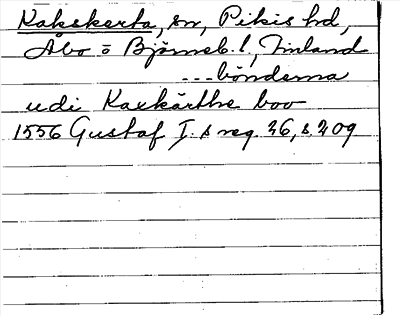 Kakskerta, sn, Pikis hd,
Åbo o Björneb. l., Finland
---bönderna
udi Kaxkärthe boo
1556 Gustaf I.s reg. 26, s. 209